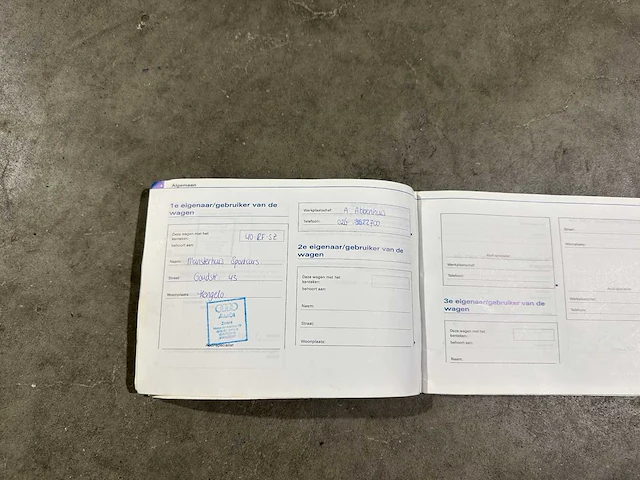 Algemeen
1e eigenaar/gebruiker van de
wagen
Deze wagen met het
kenteken:
behoort aan:
Naam: Munsterhuis Sportcars
Straat:
Woonplaats: Hengelo
AUDI
Werkplaatschef: A. Abbenhuis
Telefoon:
2e eigenaar/gebruiker van de
wagen
Deze wagen met het
kenteken:
behoort aan:
Naam:
Straat:
Woonplaats:
Telefoon:
3e eigenaar/gebruiker van de
wagen
Deze wagen met het
kenteken:
behoort aan:
Naam:
Straat:
Woonplaats:
Telefoon: